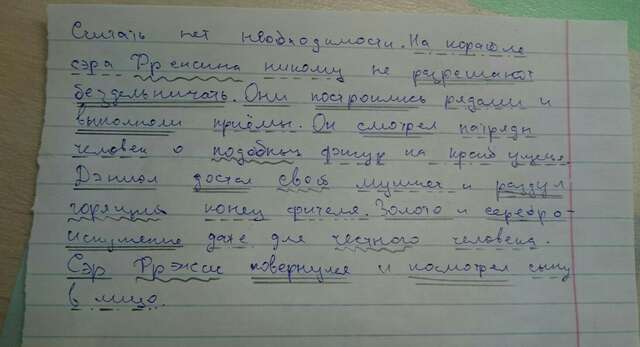 Считать нет необходимости. На корабле
сэра Фрэнсиса никому не разрешают
бездельничать. Они построились рядами и
выполняли приёмы. Он смотрел
человек о подобных на краю
Дэниэл достал свой мушкет и раздул
горящий конец фитиля. Золото и серебро -
искушение даже для честного человека.
Сэр Фрэнсис повернулся и посмотрел сыну
в лицо.